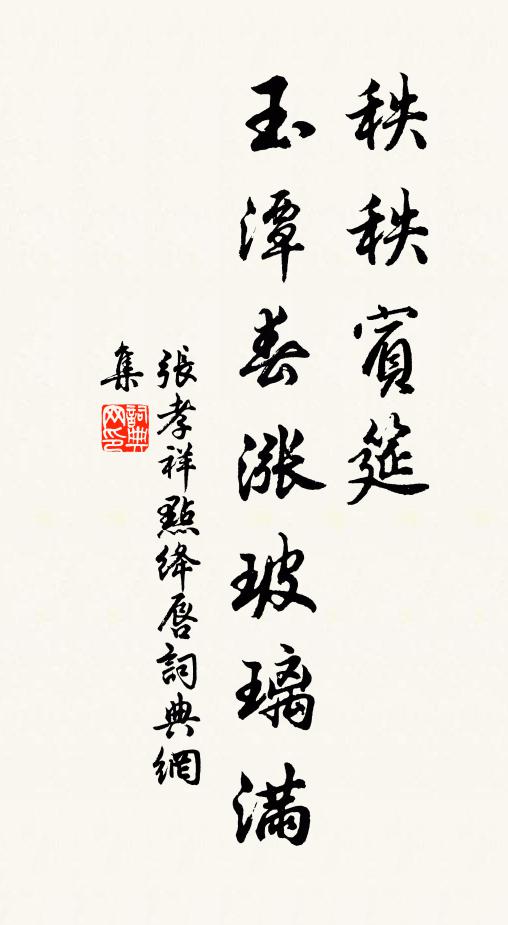 秩秩賓筵
玉潭春漲玻璃滿
張孝祥點絳唇詞典網
集
詞典網印